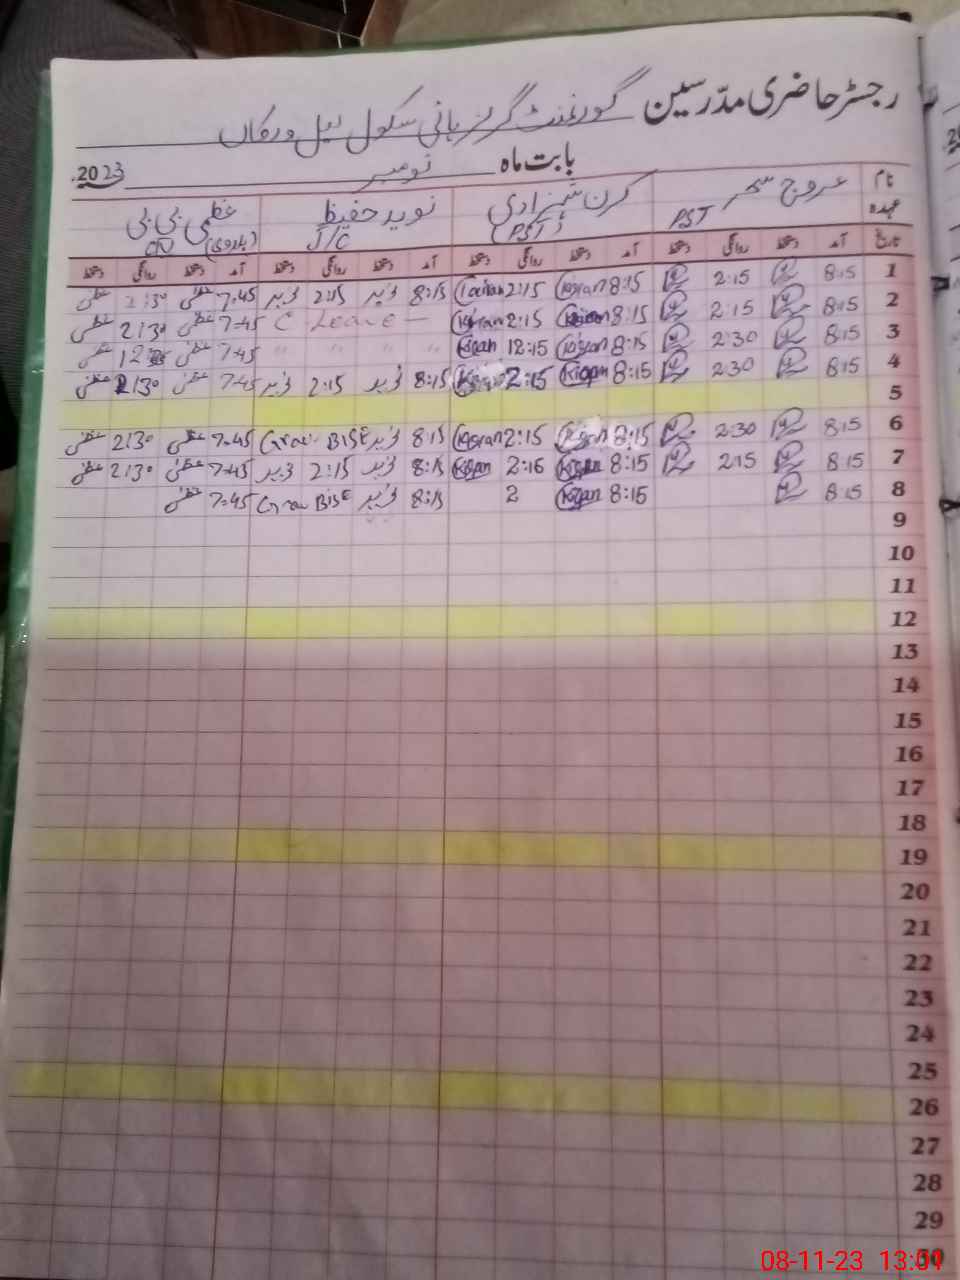 رجسٹر حاضری مدرسین گورنمنٹ گرلز ہائی سکول
بابت ماہ نومبر 2023ء
نام عروج سحر کرن شہزادی نوید حفیظ عظمیٰ بی بی
عہدہ PST (PST) J/C
تاریخ آمد دستخط روانگی دستخط آمد دستخط روانگی دستخط آمد دستخط روانگی دستخط آمد دستخط روانگی دستخط
1 8:15 2:15 8:15 Kiran 2:15 8:15 نوید 2:15 نوید 7:45 عظمیٰ 2:30 عظمیٰ
2 8:15 2:15 8:15 Kiran 2:15 Kiran C Leave – 7:45 عظمیٰ 2:30 عظمیٰ
3 8:15 2:30 8:15 Kiran 12:15 Kiran " " " " 7:45 عظمیٰ عظمیٰ
4 8:15 2:30 8:15 Kiran 2:15 8:15 نوید 2:15 نوید 7:45 عظمیٰ 2:30 عظمیٰ
5
6 8:15 2:30 8:15 Kiran 2:15 Kiran 8:15 نوید BISE 7:45 عظمیٰ 2:30 عظمیٰ
7 8:15 2:15 8:15 Kiran 2:16 Kiran 8:15 نوید 2:15 نوید 7:45 عظمیٰ 2:30 عظمیٰ
8 8:15 8:15 Kiran 2 8:15 نوید BISE 7:45 عظمیٰ
9
10
11
12
13
14
15
16
17
18
19
20
21
22
23
24
25
26
27
28
29
30
08-11-23 13:01